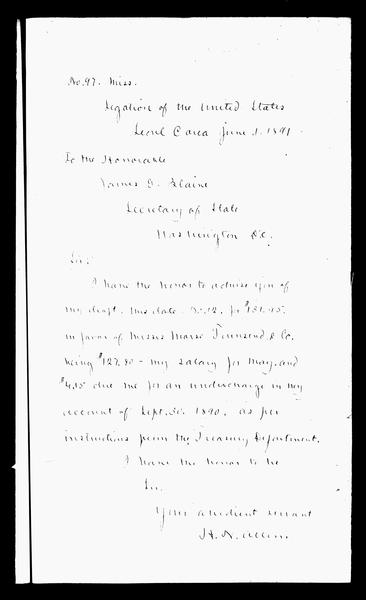 No. 97. Miss.
Legation of the United States
Seoul Corea June 1. 1891
To the Honorable
James G. Blaine
Secretary of State
Washington D.C.
Sir:
I have the honor to advise you of
my draft, this date, No. 12, for $131.95.
in favor of Messrs Morse Townsend & Co.
being $127.80 - my salary for May, and
$4.15 due me for an undercharge in my
account of Sept. 30. 1890, as per
instructions from the Treasury Department.
I have the honor to be
Sir,
Your obedient servant
H. N. Allen